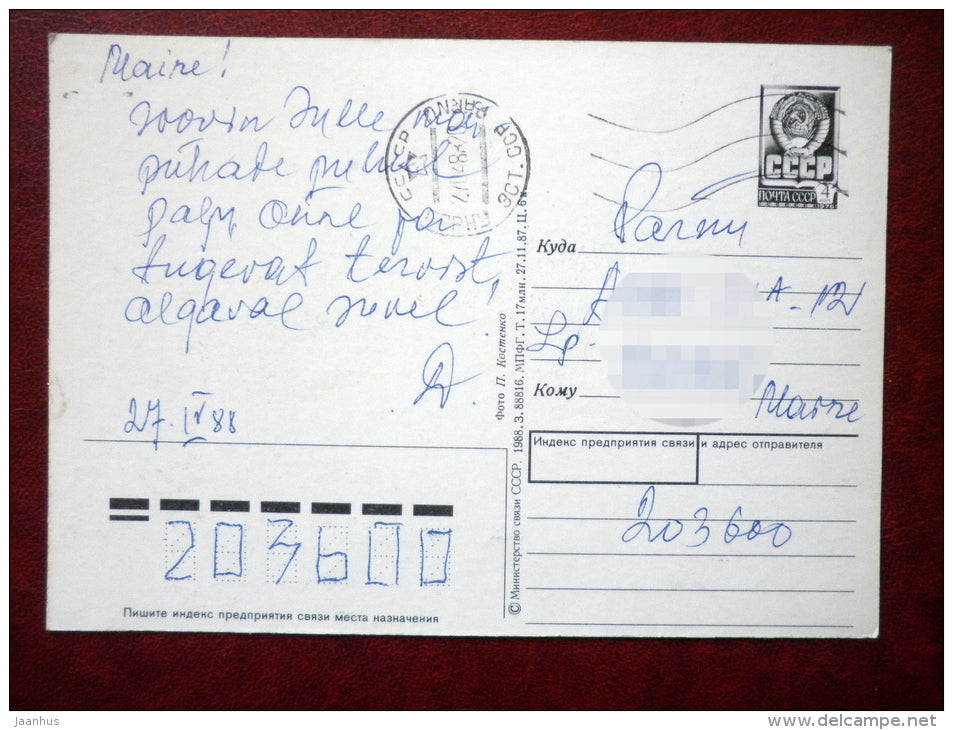 Maire!
soovin Sulle mai
pühade puhul
palju õnne ja
tugevat tervist,
algaval suvel!
27. IV 88
ПОЧТА СССР
СССР
4
1976
PARNU
ЭСТ. ССР
Куда
Pärnu
A-12
Lp.
Кому
Maire
Индекс предприятия связи и адрес отправителя
203600
203600
Пишите индекс предприятия связи места назначения
© Министерство связи СССР. 1988. З. 88816. МПФГ. Т. 17 млн. 27.11.87. Ц. 6 к.
Фото П. Костенко
jaanhus
www.delcampe.net